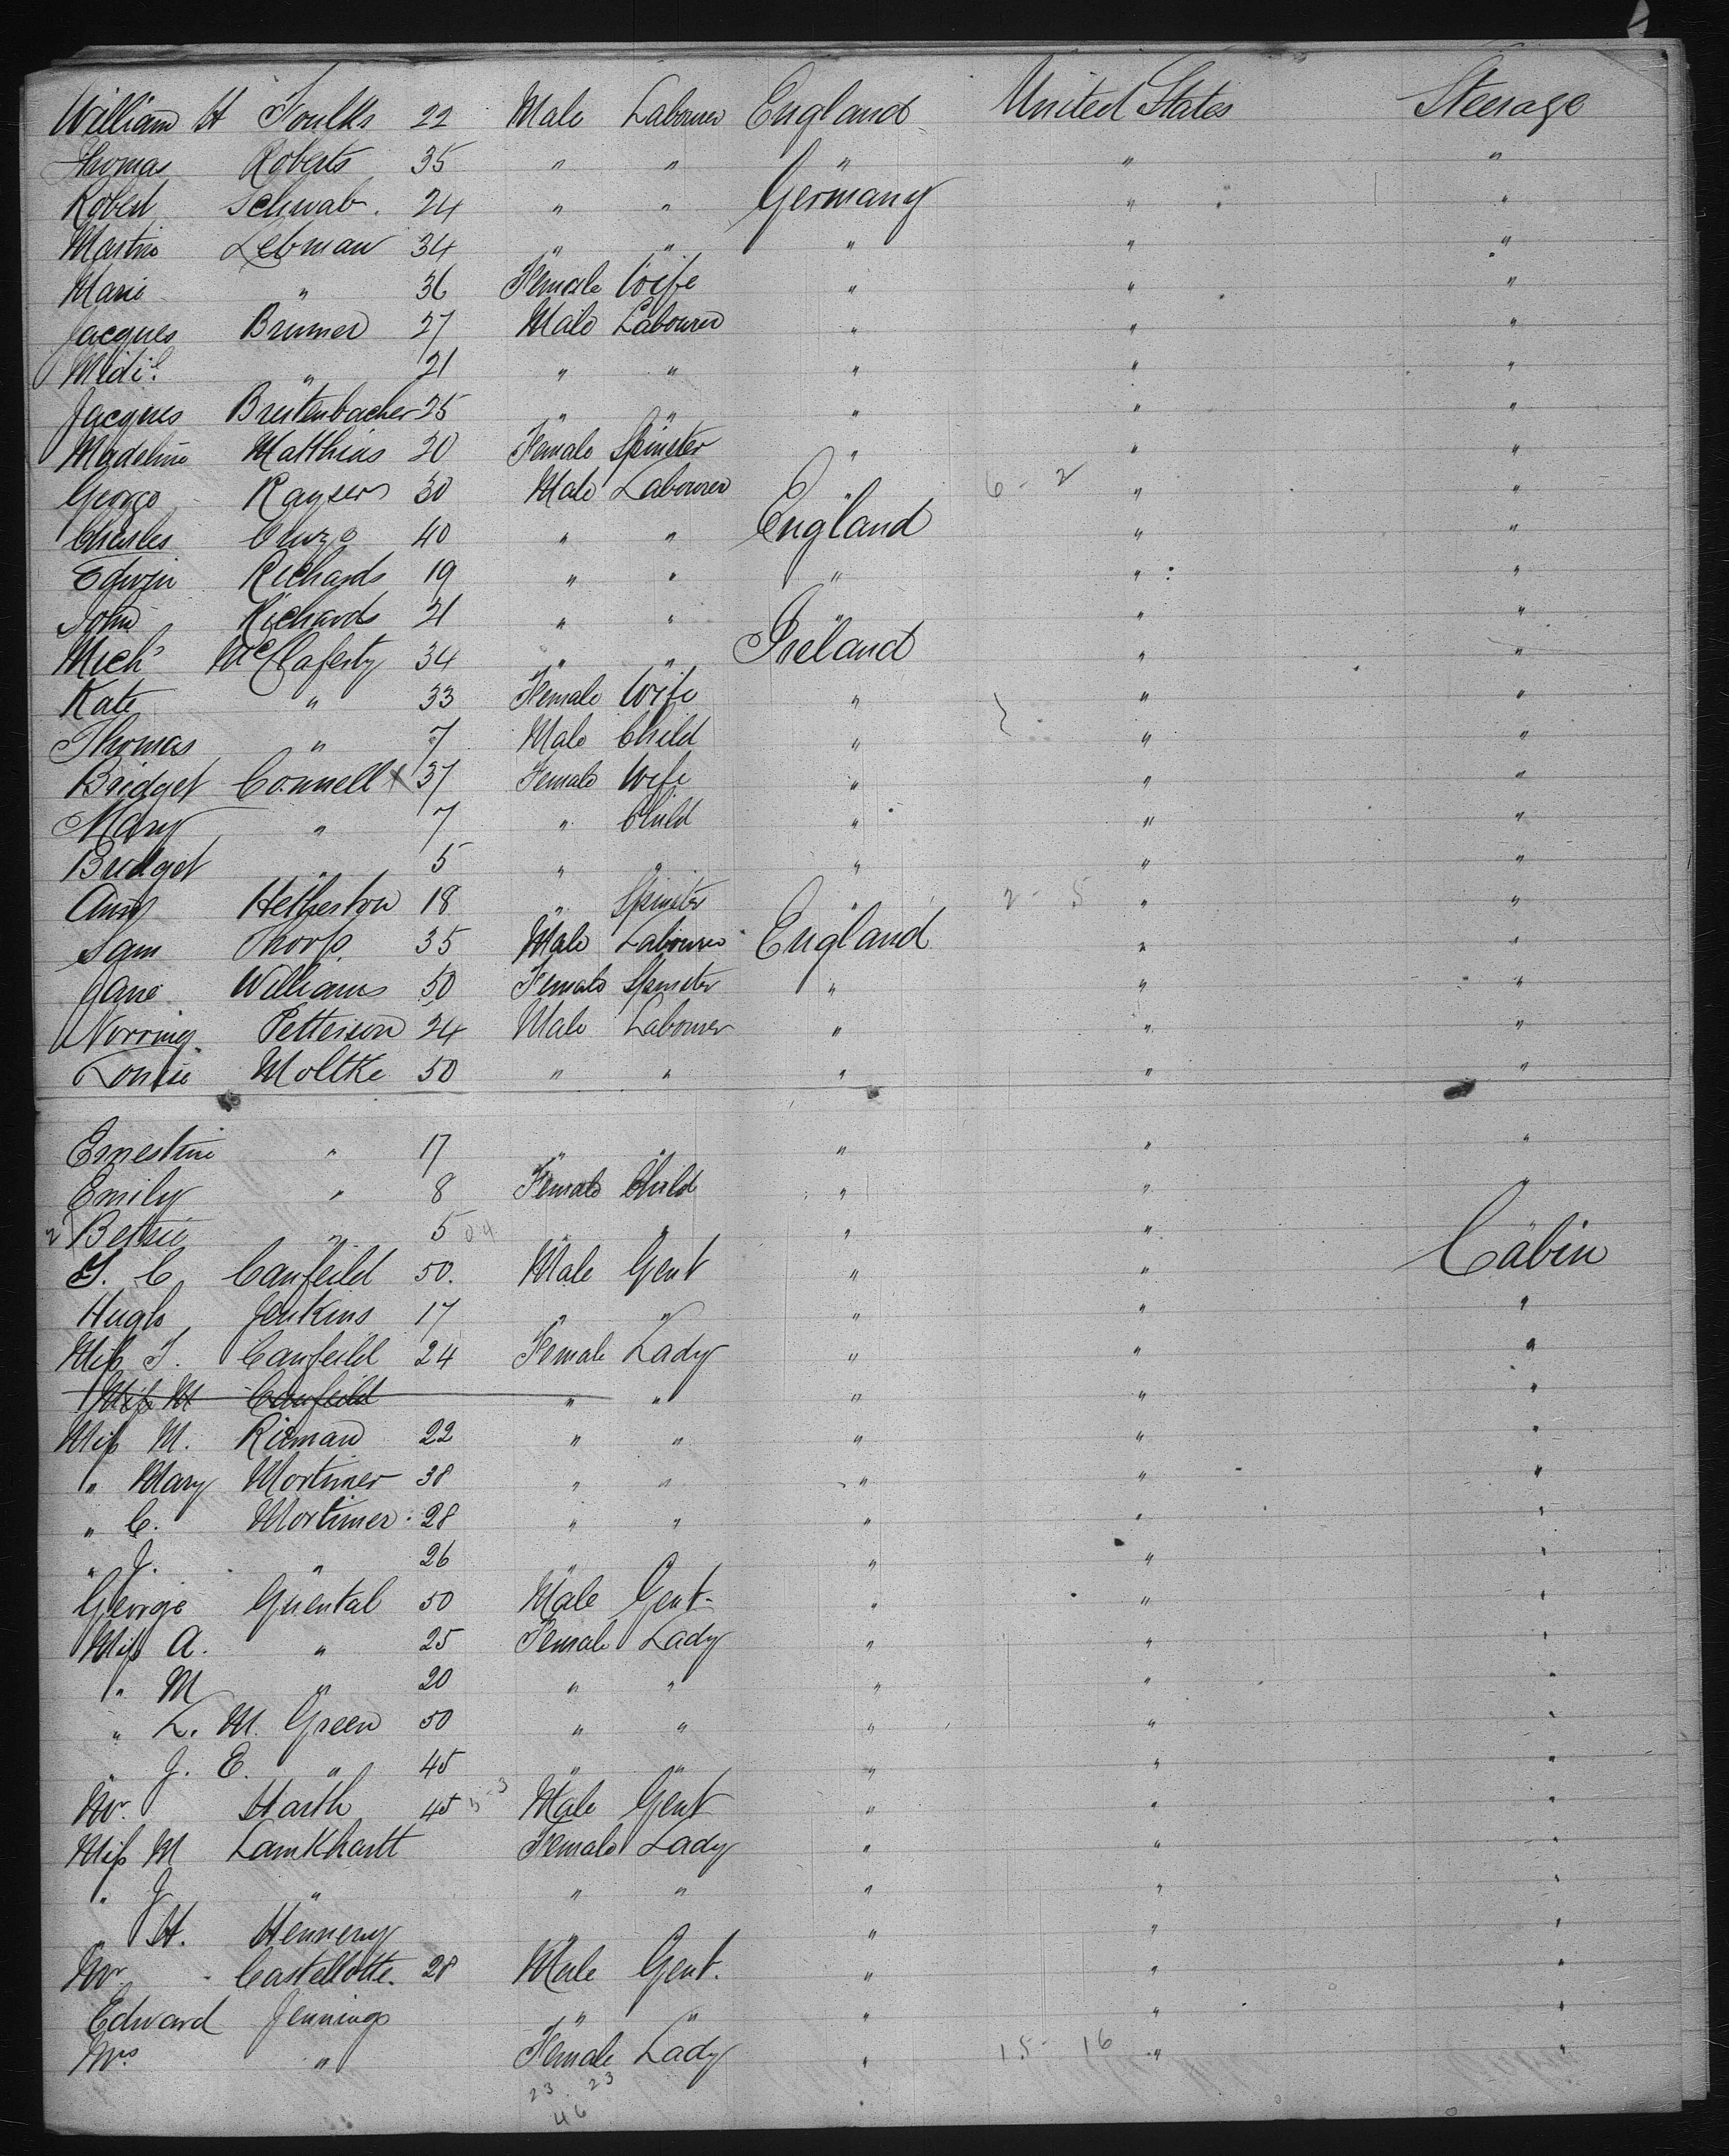 William H Foulks 22 Male Labourer England United States Steerage
Thomas Roberts 35 " " " " "
Robert Schwab. 24 " " Germany " "
Martin Lebman 34 " " " " "
Marie " 36 Female Wife " " "
Jacques Brumer 27 Male Labourer " " "
" 21 " " " " "
Jacques Breitenbacher 25 " " " " "
Madeline Matthias 20 Female Spinster " " "
George Kaysers 30 Male Labourer " 6 - 2 " "
Charles 40 " " England " "
Edwin Richards 19 " " " " "
John Richards 21 " " " " "
Mich' McClaferty 34 " " Ireland " "
Kate " 33 Female Wife " " "
Thomas " 7 Male Child " " "
Bridget Connell X 37 Female Wife " " "
Mary " 7 " Child " " "
Bridget " 5 " " " " "
Ann Hetherton 18 " Spinster " 2 - 5 " "
Sam Thorp. 35 Male Labourer England " "
Jane Williams 50 Female Spinster " " "
Petterson 24 Male Labourer " " "
Louise Moltke 50 " " " " "
Ernestine " 17 " " " " "
Emily " 8 Female Child " " "
2 Betsie " 5 04 " " " " "
T. C Canfeild 50. Male Gent " " Cabin
Hugh Jenkins 17 " " " " "
Miss T. Canfeild 24 Female Lady " " "
Miss M Canfeild " " " " "
Miss M. Rieman 22 " " " " "
" Mary Mortimer 38 " " " " "
" C. Mortimer 28 " " " " "
" J. " 26 " " " "
George Guental 50 Male Gent- " " "
Miss A. " 25 Female Lady " " "
" M " 20 " " " " "
" L. M. Green 50 " " " " "
" J. E. " 45 " " " " "
Mr. Harth 45 5-3 Male Gent " " "
Miss M Lamkhartt Female Lady " " "
" J " " " " " "
" H. Hennery " " " "
Mr Castellotte. 28 Male Gent. " " "
Edward Jennings " " " " "
Mrs " Female Lady " 15 - 16 " "
23. 23
46